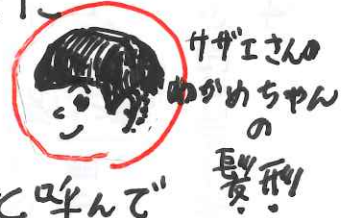 サザエさんの
わかめちゃん
の
髪型
と呼んで